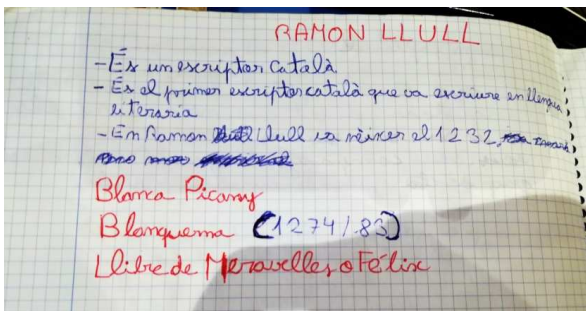 RAMON LLULL
-És un escriptor català
- És el primer escriptor català que va escriure en llengua
literaria
-En Ramon Llull va néixer el 1232,
Blanca Picany
Blanquerna (1274/.83)
Llibre de Meravelles o Félix